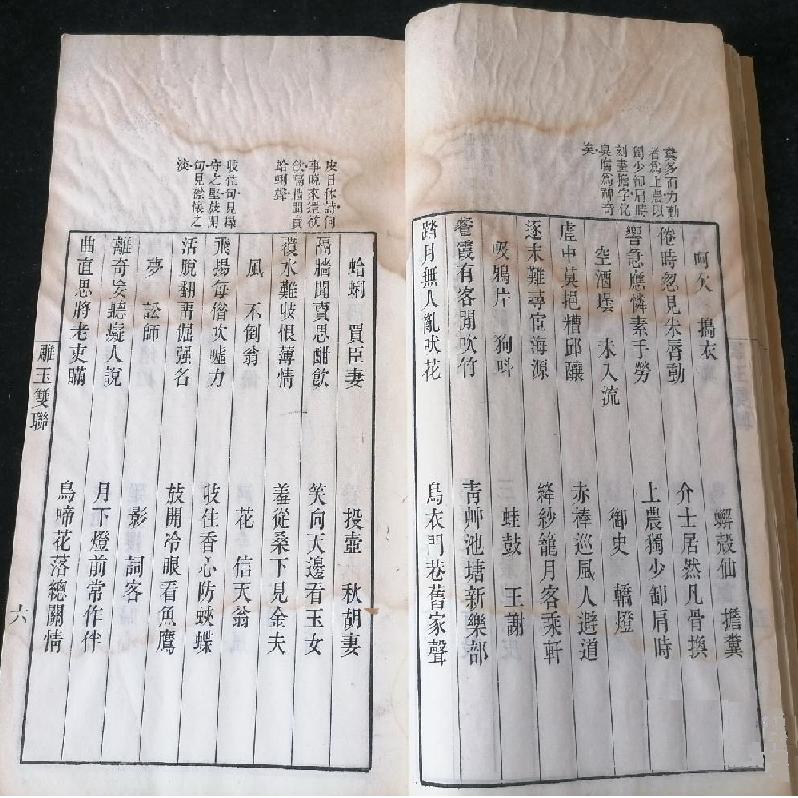 糞多而力勤
者為上農項
獨少卸肩時
刻畫擔字化
臭腐為神奇
矣
呵欠 搗衣 蠏殼仙 擔糞
倦時忽見朱唇動 介士居然凡骨換
響急應憐素手勞 上農獨少卸肩時
空酒壜 未入流 御史 轎燈
虛中莫挹糟邱釀 赤棒巡風人避道
逐末難尋宦海源 絳紗籠月客乘軒
吸鴉片 狗呌 蛙鼓 王謝
餐霞有客閒吹竹 青艸池塘新樂部
踏月無人亂吠花 烏衣門巷舊家聲
皮日休詩何
事晚來還欲
飲隔牆聞賣
蛤蜊聲
收住句見操
守之堅放開
句見襟懷之
淡
蛤蜊 買臣妻 投壺 秋胡妻
隔牆聞賣思酣飲 笑向天邊看玉女
覆水難收恨薄情 羞從桑下見金夫
風 不倒翁 花 信天翁
飛揚每借吹噓力 收住香心防蛺蝶
活脫翻嘗倔强名 放開冷眼看魚鷹
夢 訟師 影 詞客
離奇妄聽癡人說 月下燈前常作伴
曲直思將老吏瞞 鳥啼花落總關情
雕玉雙聯 六